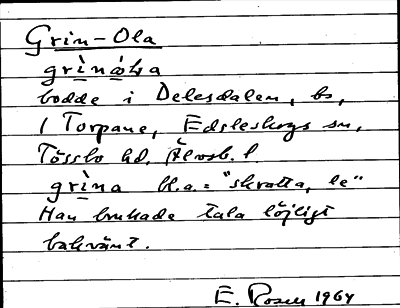 Grin-Ola
grìnóla
bodde i Delesdalen, bs,
1 Torpane, Edsleskogs sn,
Tössbo hd, Älvsb. l.
grìna bl.a. = "skratta, le"
Han brukade tala löjligt
bakvänt.
E. Rosen 1964